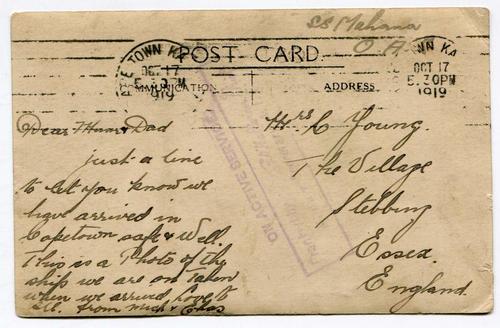 SS Mahana
O A
POST CARD
CAPE TOWN KA
OCT 17
5.30PM
1919
TOWN KA
OCT 17
5.30PM
1919
COMMUNICATION
ADDRESS
ON ACTIVE SERVICE
Dear Mum & Dad
just a line
to let you know we
have arrived in
Capetown safe & well.
This is a Photo of the
ship we are on taken
when we arrived, love to
all. from Mick & Chas
Mrs C Young.
The Village
Stebbing
Essex.
England.